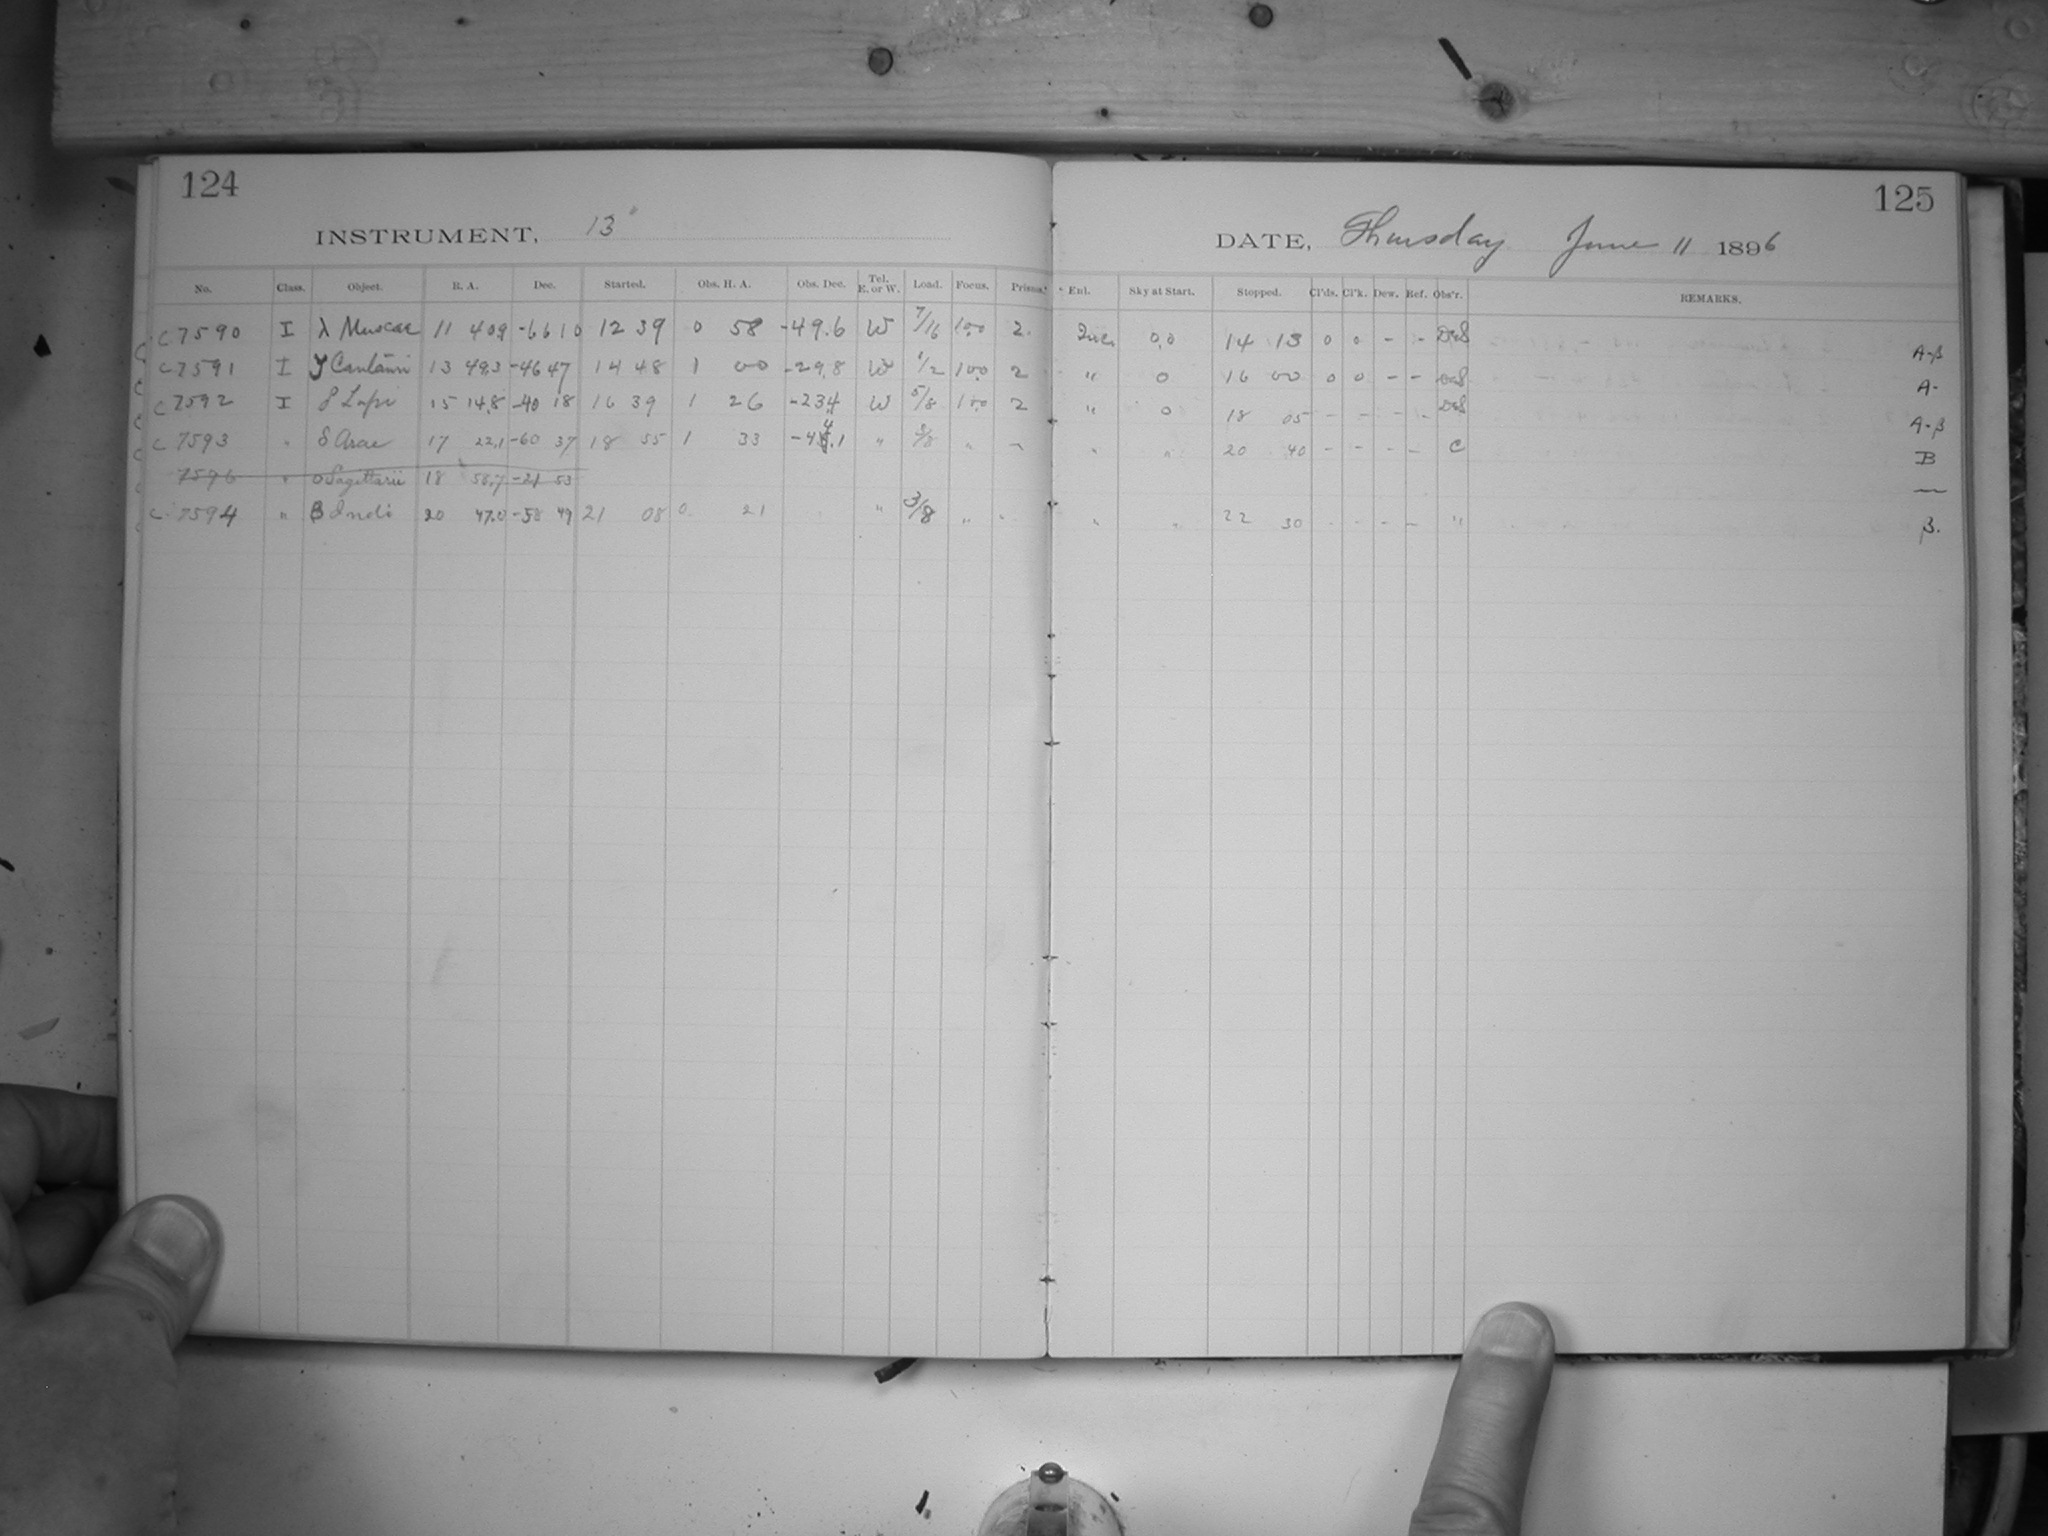 124
INSTRUMENT, 13"
No. Class. Object. R. A. Dec. Started. Obs. H. A. Obs. Dec. Tel. E. or W. Load. Focus. Prisms.
C 7590 I λ Muscae 11 40.9 -66 10 12 39 0 58 -49.6 W 7/16 10.0 2.
C 7591 I 13 49.3 -46 47 14 48 1 00 -29.8 W 1/2 10.0 2
C 7592 I Lupi 15 14.8 -40 18 16 39 1 26 -23.4 W 5/8 10.0 2
C 7593 " δ Arae 17 22.1 -60 37 18 55 1 33 " "
7596 " o Sagittarii 18 58.7 -21 53
C 7594 " β Indi 20 47.0 -58 49 21 08 0 21 " 3/8 " "
125
DATE, Thursday June 11 1896
Enl. Sky at Start. Stopped. Cl'ds. Cl'k. Dew. Ref. Obs'r. REMARKS.
0.0 14 13 0 0 - - A-β
" 0 16 00 0 0 - - A-
" 0 18 05 - - - - A-β
" " 20 40 - - - - C B
—
" " 22 30 - - - - " β.